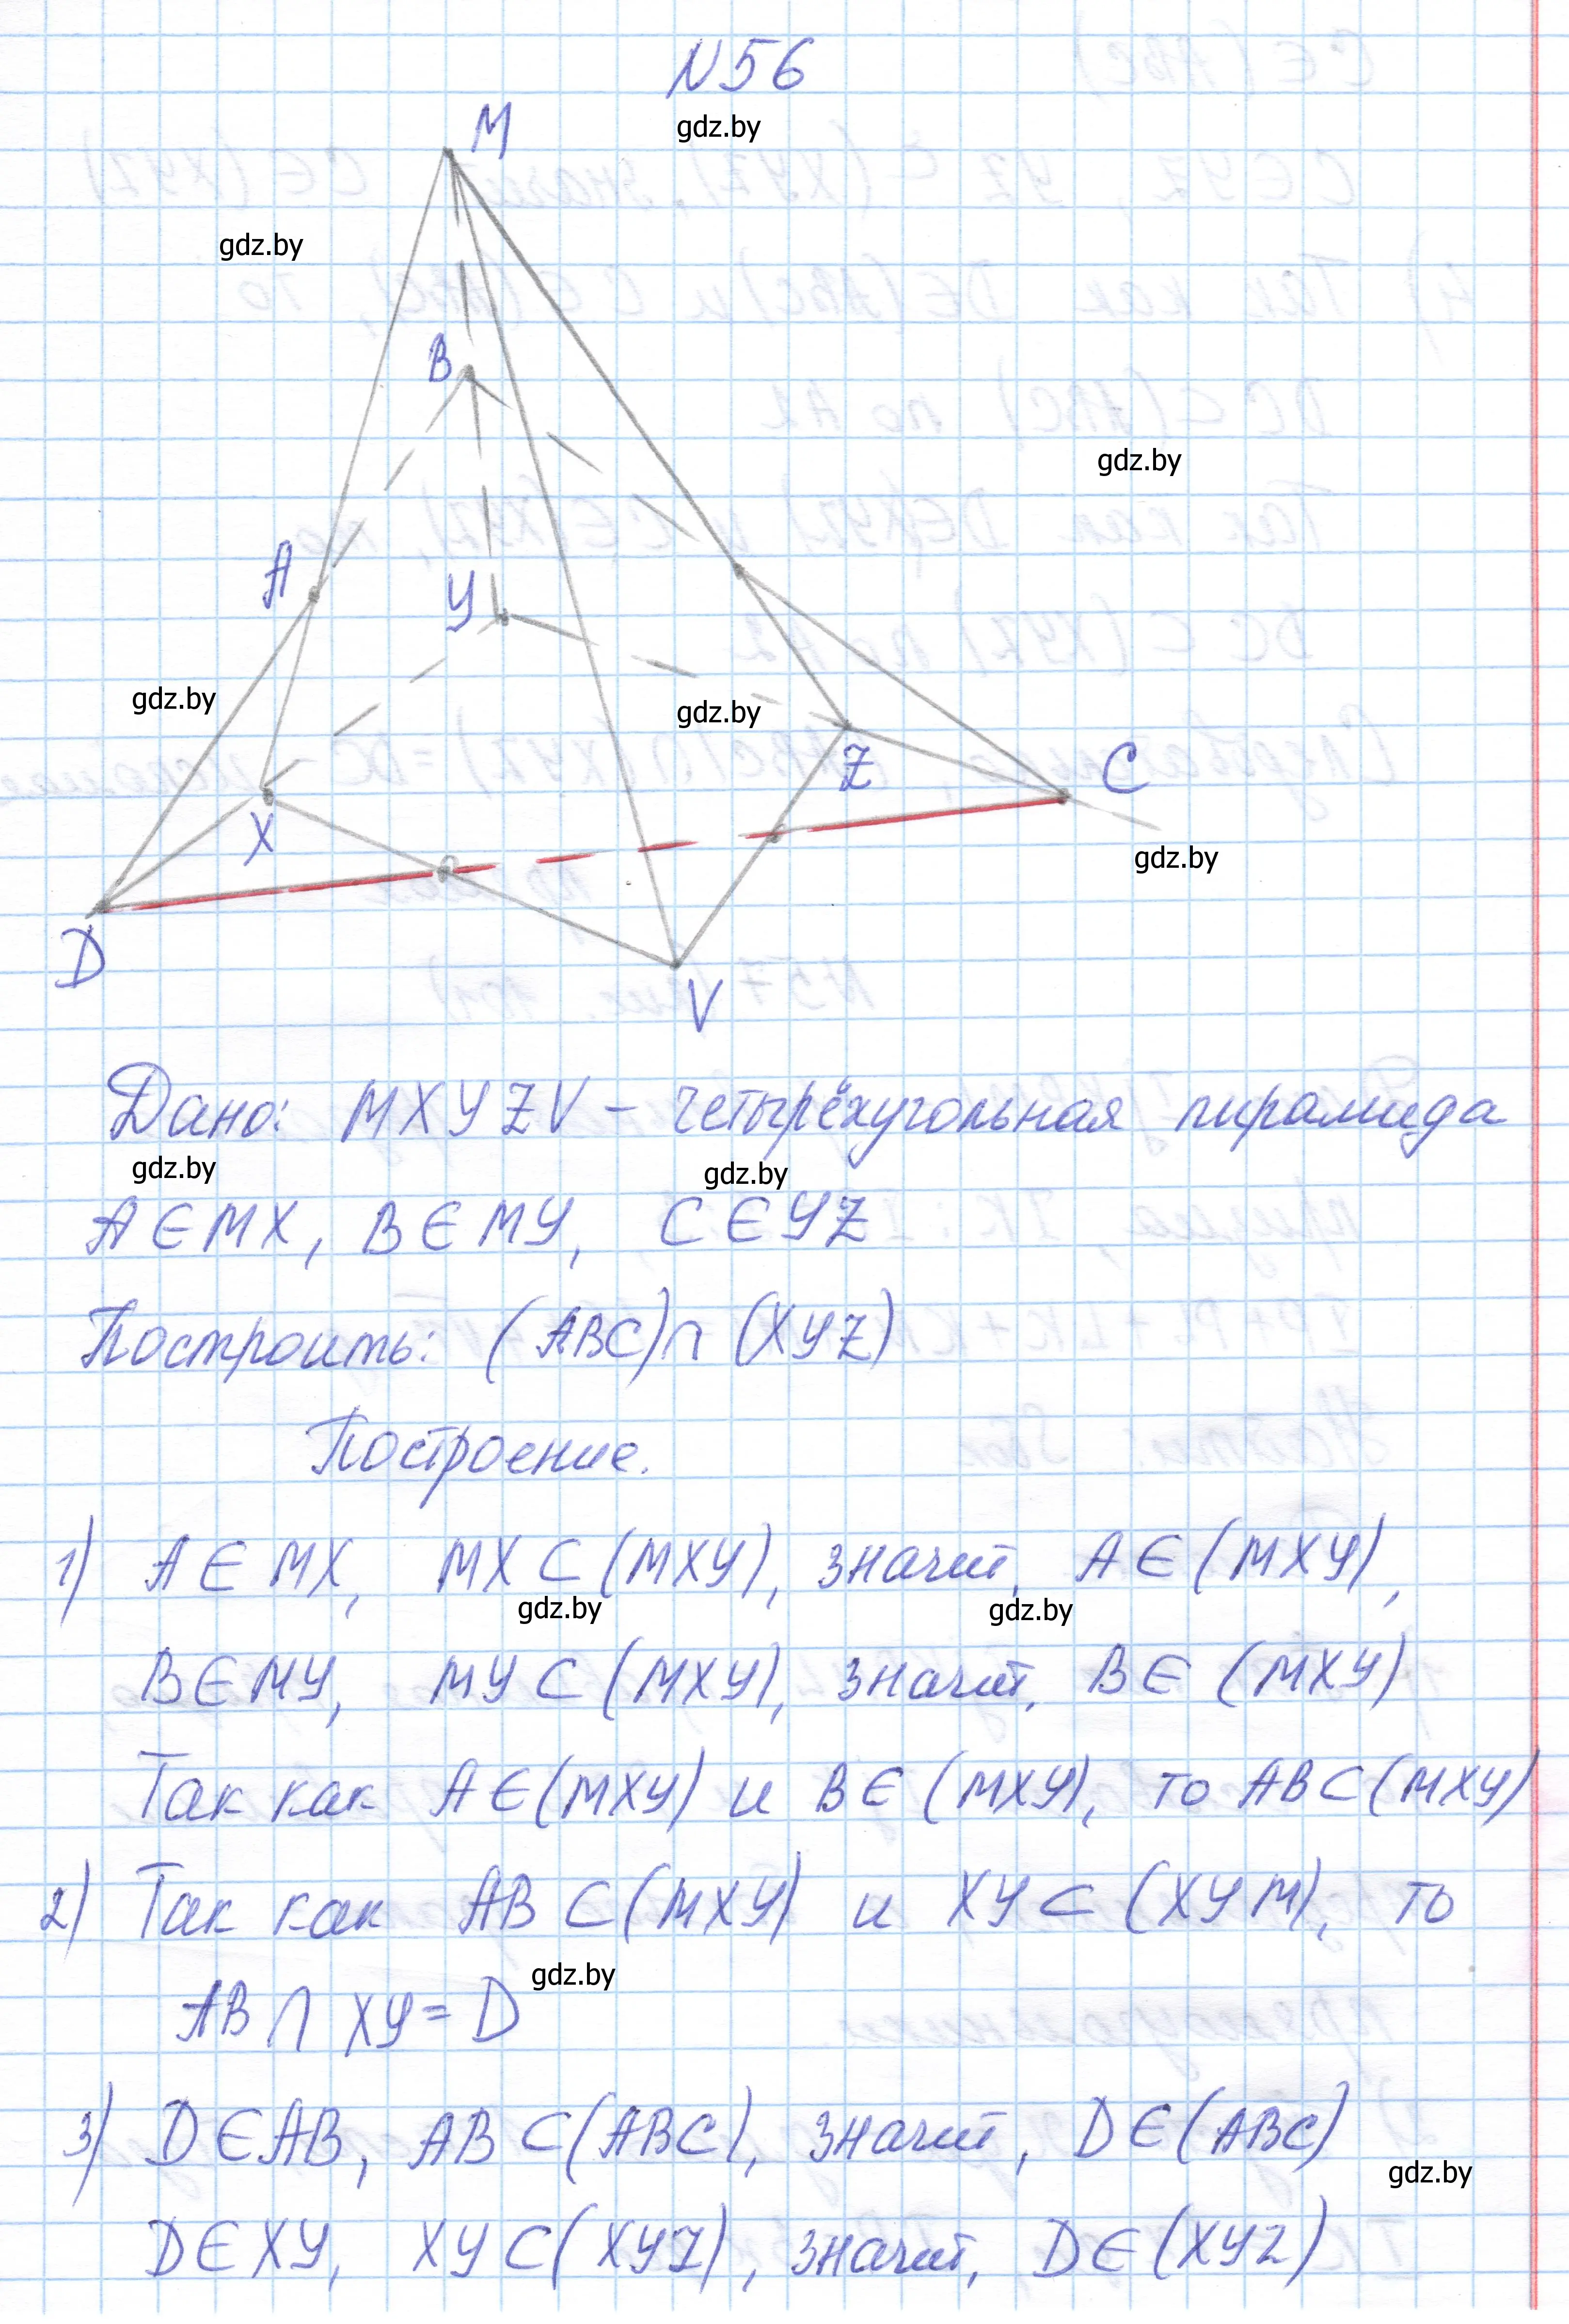 N56
gdz.by
M
gdz.by
B
gdz.by
A
У
gdz.by
gdz.by
Z
C
X
gdz.by
D
V
Дано: MXYZV – четырёхугольная пирамида
gdz.by
gdz.by
A∈MX, B∈MY, C∈YZ
Построить: (ABC)∩(XYZ)
Построение.
1) A∈MX, MX⊂(MXY), значит, A∈(MXY),
gdz.by
gdz.by
B∈MY, MY⊂(MXY), значит, B∈(MXY)
Так как A∈(MXY) и B∈(MXY), то AB⊂(MXY)
2) Так как AB⊂(MXY) и XY⊂(XYM), то
gdz.by
AB∩XY=D
3) D∈AB, AB⊂(ABC), значит, D∈(ABC)
gdz.by
D∈XY, XY⊂(XYZ), значит, D∈(XYZ)